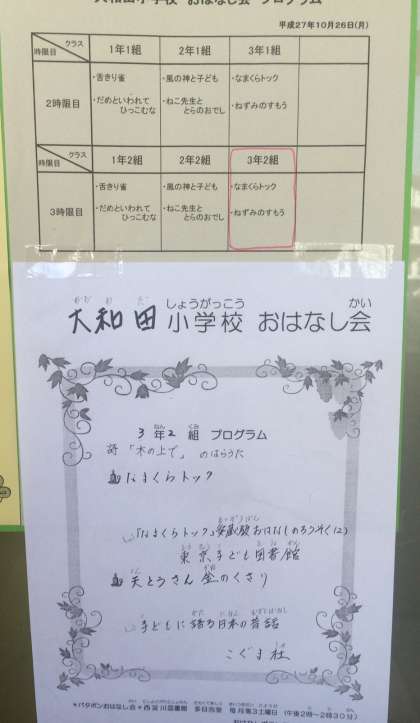 大和田小学校 おはなし会 プログラム
平成27年10月26日(月)
クラス 時限目 1年1組 2年1組 3年1組
2時限目
・舌きり雀 ・風の神と子ども ・なまくらトック
・だめといわれてひっこむな ・ねこ先生ととらのおでし ・ねずみのすもう
クラス 時限目 1年2組 2年2組 3年2組
3時限目
・舌きり雀 ・風の神と子ども ・なまくらトック
・だめといわれてひっこむな ・ねこ先生ととらのおでし ・ねずみのすもう
大和田小学校 おはなし会
3年2組 プログラム
詩「木の上で」 のはらうた
なまくらトック
「なまくらトック」 おはなしのろうそく(2)
東京子ども図書館
天とうさん金のくさり
子どもに語る日本の昔話
こぐま社
*パタポンおはなし会*西淀川図書館 多目的室 毎月第3土曜日 (午後2時~2時30分)